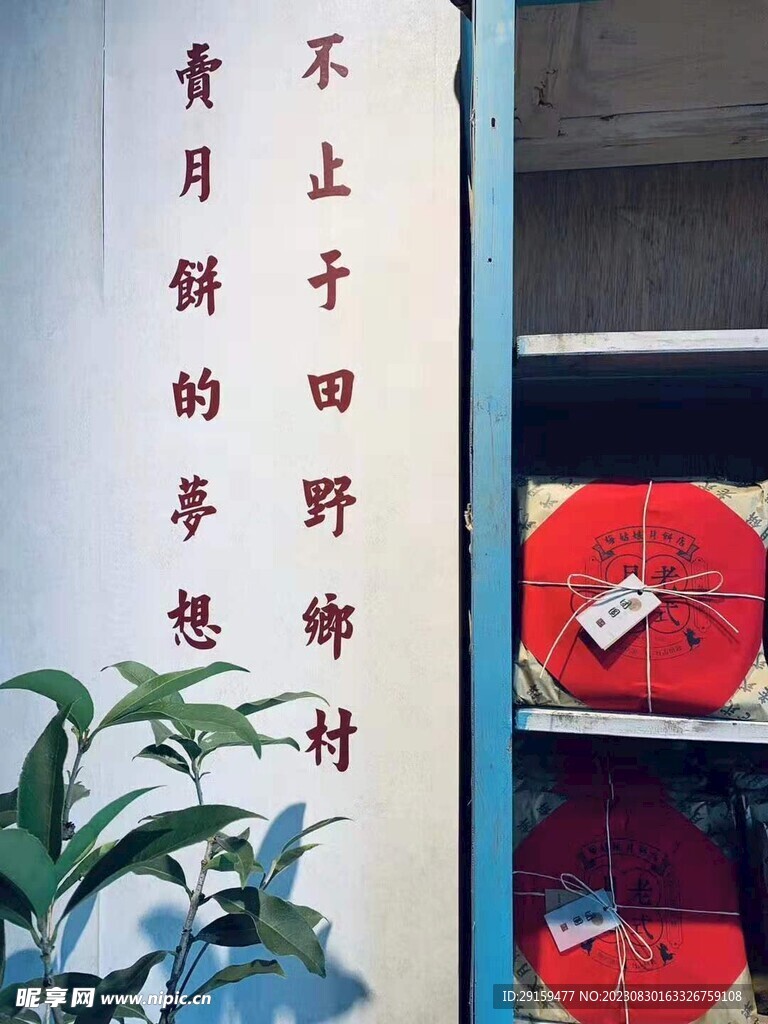 不止于田野鄉村
賣月餅的夢想
老式
月
团圆
老式
昵享网 www.nipic.cn
ID:29159477 NO:20230830163326759108